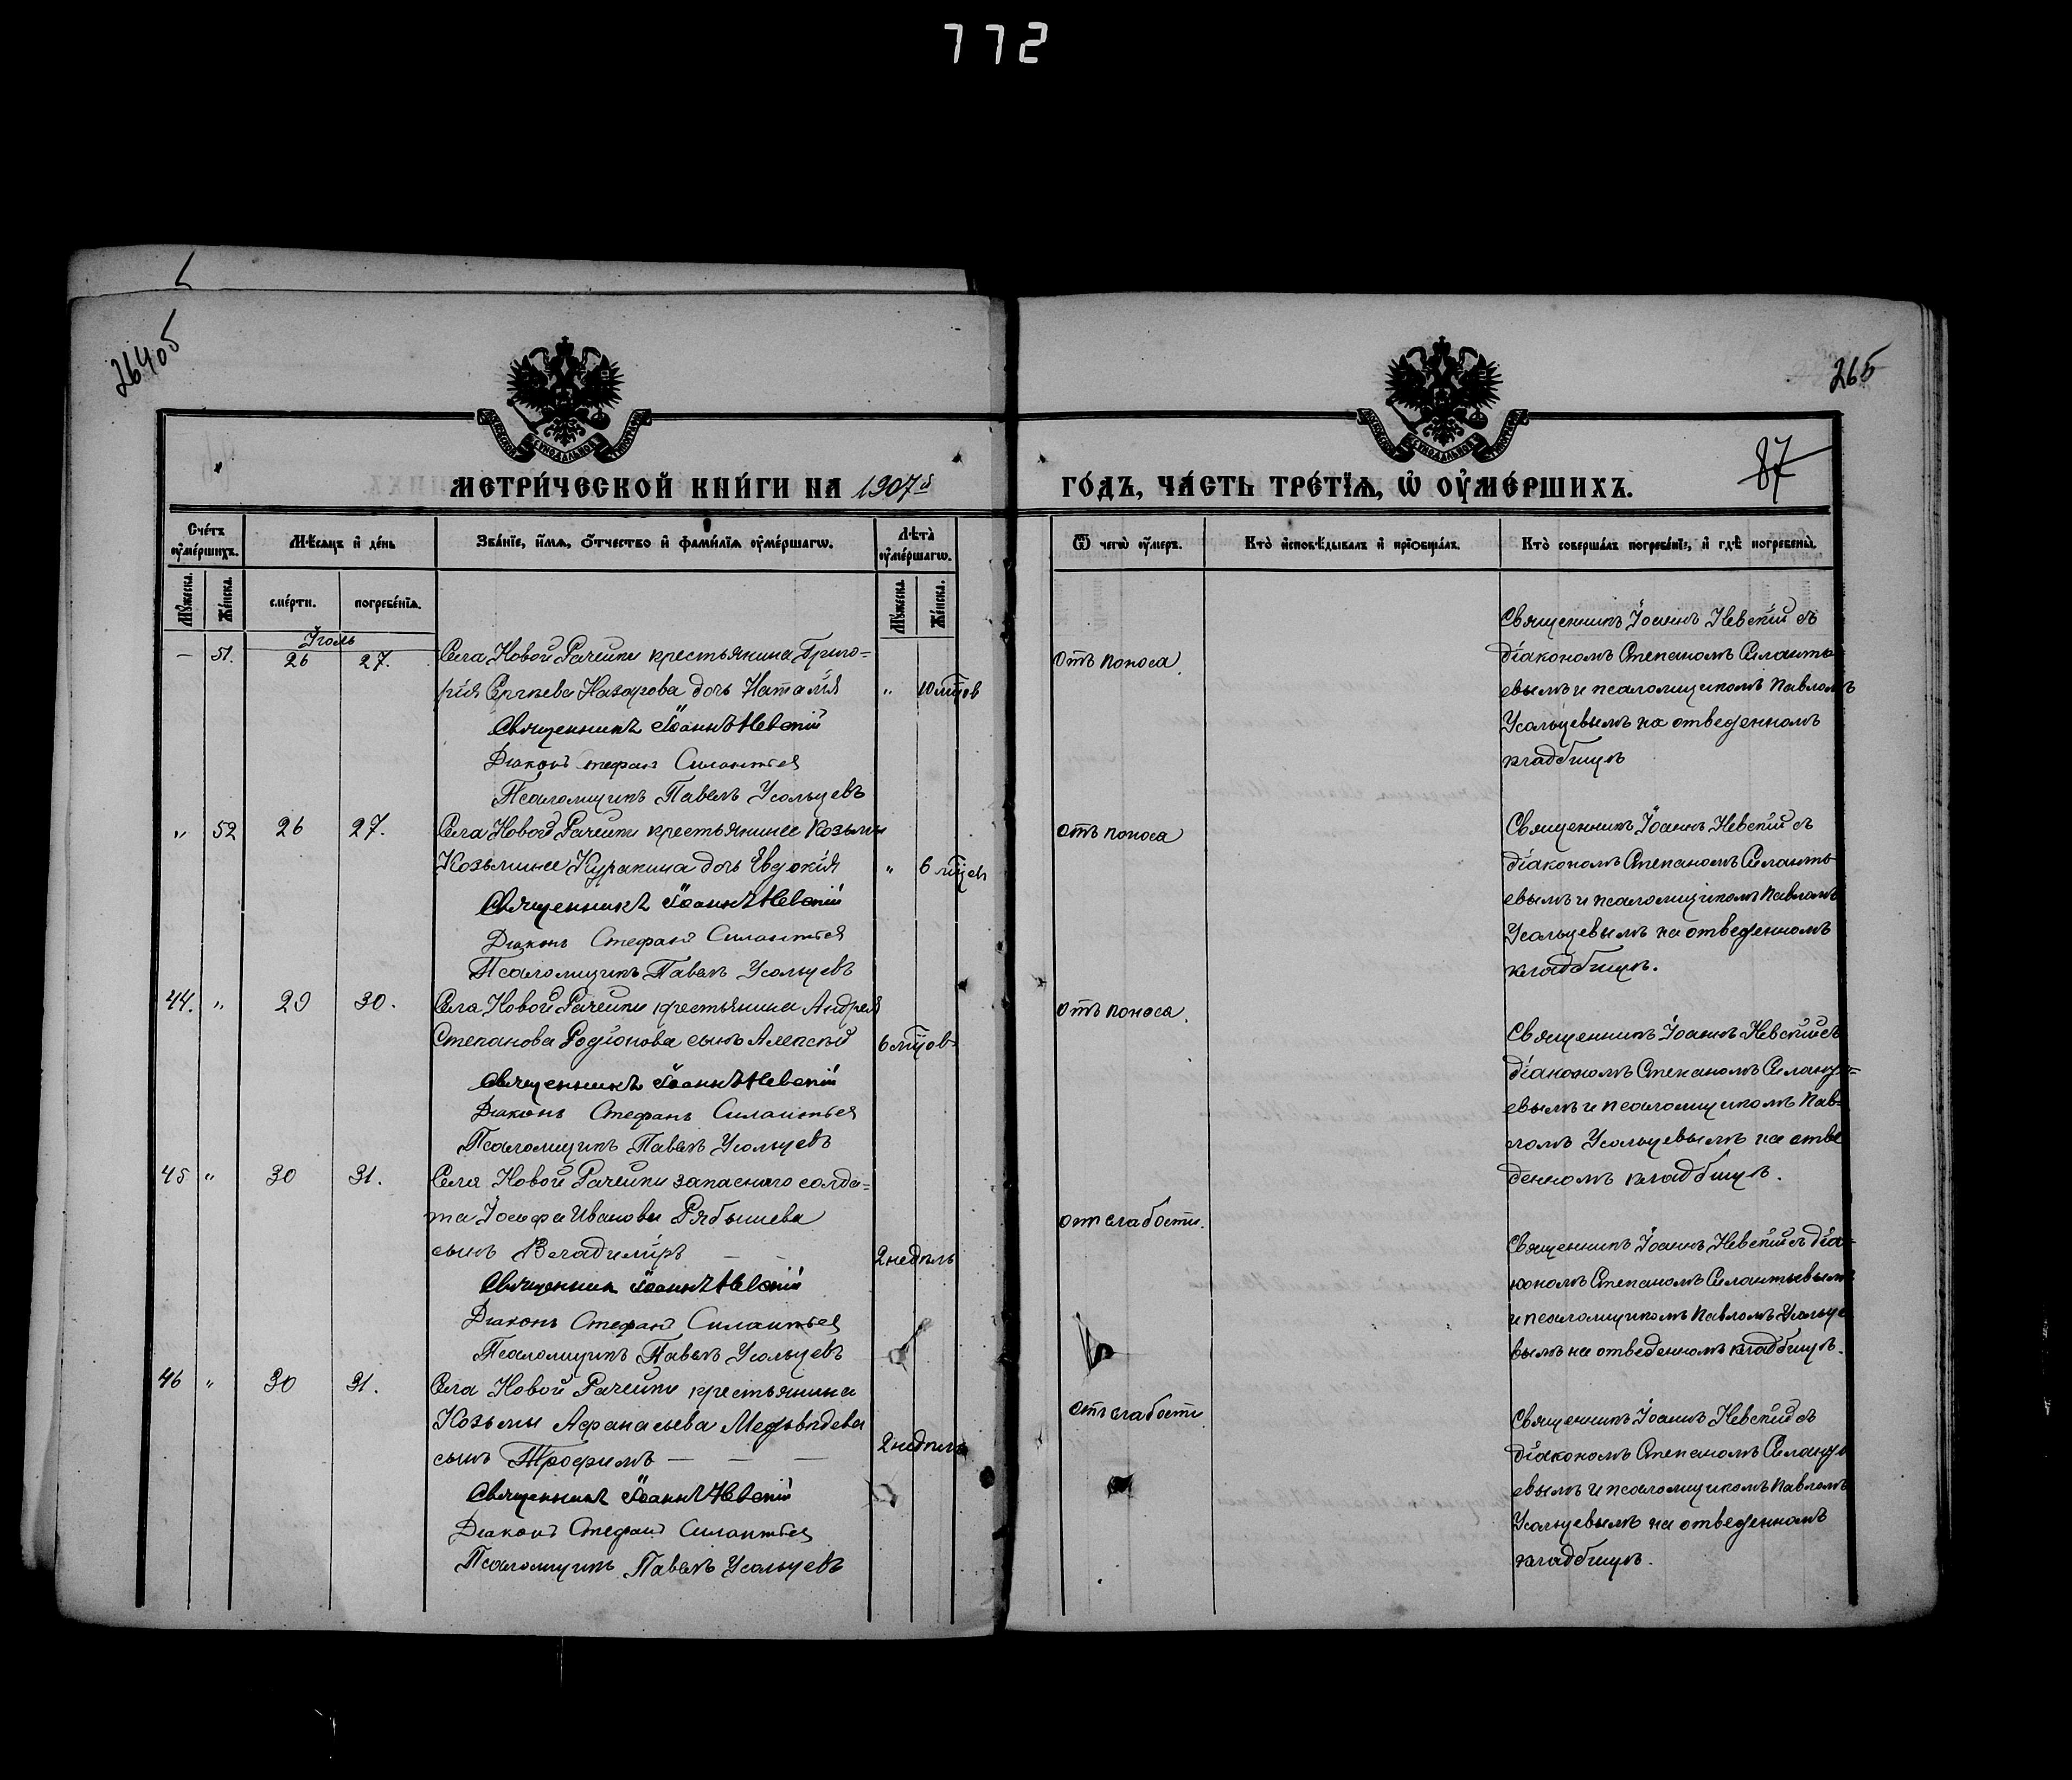 772
264об
265
87
МЕТРИ́ЧЕСКОЙ КНИ́ГИ НА 1907й ГО́ДЪ, ЧА́СТЬ ТРЕ́ТІЯ, Ѡ҆ ОУ҆МЕ́РШИХЪ.
Сче́тъ оу҆ме́ршихъ.
Мѣ́сяцъ и҆ де́нь
Зва́нїе, и҆́мя, ѻ҆́тчество и҆ фами́лїя оу҆ме́ршагѡ.
Лѣ́та оу҆ме́ршагѡ.
Ѿ чегѡ̀ оу҆́меръ.
Кто̀ и҆сповѣ́дывалъ и҆ прїѡбща́лъ.
Кто̀ соверша́лъ погребе́нїе, и҆ гдѣ̀ погребены̀.
Му́жеска. Же́нска.
сме́рти. погребе́нїя.
Му́жеска. Же́нска.
Іюль
— 51. 26 27. Села Новой Рачейки крестьянина Григо=
рія Сергѣева Назарова дочь Наталія " 10 мѣцов
Священникъ Іоаннъ Невскій
Діаконъ Стефанъ Силантьев
Псаломщикъ Павелъ Усольцевъ
отъ поноса
Священникъ Іоаннъ Невскій съ
діакономъ Степаномъ Силанть
евымъ и псаломщикомъ Павломъ
Усольцевымъ на отведенномъ
кладбищѣ
" 52 26 27. Села Новой Рачейки крестьянина Козьмы
Козьмина Куракина дочь Евдокія " 6 мѣцев
Священникъ Іоаннъ Невскій
Діаконъ Стефанъ Силантьев
Псаломщикъ Павелъ Усольцевъ
отъ поноса
Священникъ Іоаннъ Невскій съ
діакономъ Степаномъ Силанть
евымъ и псаломщикомъ Павломъ
Усольцевымъ на отведенномъ
кладбищѣ.
44. " 29 30. Села Новой Рачейки крестьянина Андрея
Степанова Родіонова сынъ Алексѣй 6 мѣцов
Священникъ Іоаннъ Невскій
Діаконъ Стефанъ Силантьев
Псаломщикъ Павелъ Усольцевъ
отъ поноса.
Священникъ Іоаннъ Невскій съ
діакономъ Степаномъ Силанть=
евымъ и псаломщикомъ Пав=
ломъ Усольцевымъ на отве
денномъ кладбищѣ.
45 " 30 31. Села Новой Рачейки запаснаго солда=
та Іосифа Иванова Рябышева
сынъ Владиміръ — — 2 недѣль
Священник Іоаннъ Невскій
Діаконъ Стефанъ Силантьев
Псаломщикъ Павелъ Усольцевъ
от слабости.
Священникъ Іоаннъ Невскій съ діа=
кономъ Степаномъ Силантьевымъ
и псаломщикомъ Павломъ Усольце
вымъ на отведенномъ кладбищѣ.
46 " 30 31. Села Новой Рачейки крестьянина
Козьмы Афанасьева Медвѣдева
сынъ Трофимъ — — — 2 недѣль
Священникъ Іоаннъ Невскій
Діаконъ Стефанъ Силантьев
Псаломщикъ Павелъ Усольцевъ
отъ слабости
Священникъ Іоаннъ Невскій съ
діакономъ Степаномъ Силанть
евымъ и псаломщикомъ Павломъ
Усольцевымъ на отведенномъ
кладбищѣ.